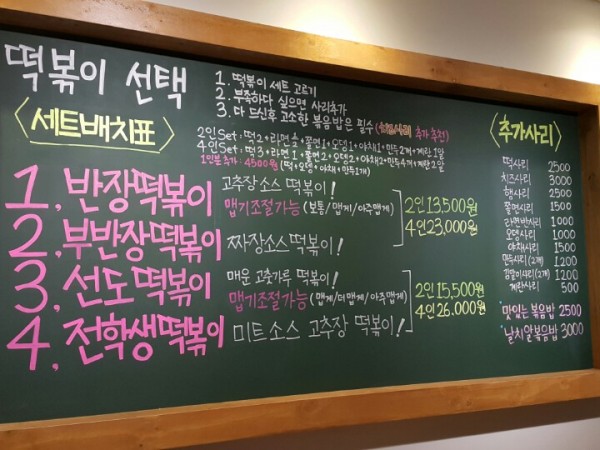 떡볶이 선택
<세트배치표>
1. 떡볶이 세트 고르기
2. 부족하다 싶으면 사리추가
3. 다 드신후 고소한 볶음밥은 필수 (사리 추가 추천)
2인Set : 떡2+라면½+쫄면1+오뎅1+야채1+만두2개+계란1알
4인Set : 떡3+라면1+쫄면2+오뎅2+야채2+만두4개+계란2알
1인분 추가 : 4500원 (떡+오뎅+야채+만두1개)
1. 반장떡볶이 고추장소스 떡볶이!
맵기조절가능 (보통/맵게/아주맵게)
2. 부반장떡볶이 짜장소스떡볶이!
2인13,500원
4인23,000원
3. 선도떡볶이 매운 고춧가루 떡볶이!
맵기조절가능 (맵게/더맵게/아주맵게)
4. 전학생떡볶이 미트소스 고추장 떡볶이!
2인15,500원
4인26,000원
<추가사리>
떡사리 2500
치즈사리 3000
햄사리 2500
쫄면사리 1500
라면반사리 1000
오뎅사리 1000
야채사리 1500
만두사리(2개) 1200
김말이사리(2개) 1200
계란사리 500
맛있는 볶음밥 2500
날치알볶음밥 3000